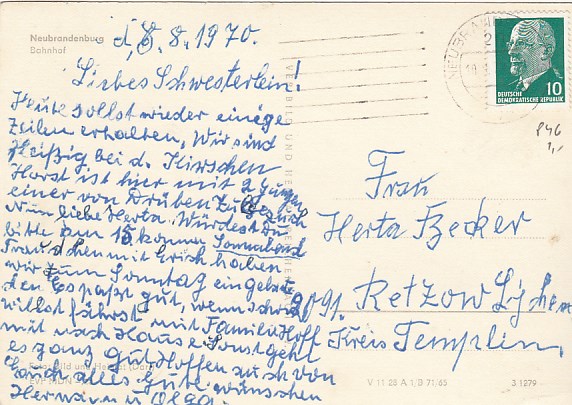 Neubrandenburg
Bahnhof
d, 8. 8. 1970.
Liebes Schwesterlein!
Heute sollst wieder einige
Zeilen erhalten, Wir sind
fleißig bei d. Kirschen
Horst ist hier mit 2 Jungen
einer von Drüben zu Besuch
Nun liebe Herta. Würdest Du
bitte am 15 komm Sonnabend
Frau chen mit Erich haben
wir zum Sonntag eingela
den Es paßt gut, wenn schon
willst fährst mit Familie Hoff
mit nach Hause Sonst geht
es ganz gut Hoffen auch von
Euch alles Gute wünschen
Hermann u Olga
Foto: Bild und Heimat
V 11 28 A 1/B 71/65
3 1279
10
DEUTSCHE
DEMOKRATISCHE REPUBLIK
P46
1,-
Frau
Herta Becker
2091. Retzow Lychen
Kreis Templin.